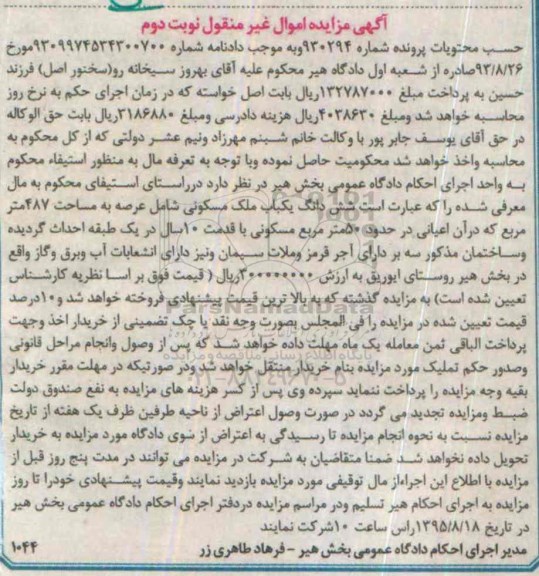 آگهی مزایده اموال غیر منقول نوبت دوم
حسب محتویات پرونده شماره ۹۳۰۲۹۴وبه موجب دادنامه شماره ۹۳۰۹۹۷۴۵۳۴۳۰۰۷۰۰مورخ
۹۳/۸/۲۶صادره از شعبه اول دادگاه هیر محکوم علیه آقای بهروز سبحانه رو(سختور اصل) فرزند
حسین به پرداخت مبلغ ۱۳۲۷۸۷۰۰۰ریال بابت اصل خواسته که در زمان اجرای حکم به نرخ روز
محاسبه خواهد شد ومبلغ ۴۰۳۸۶۳۰ریال هزینه دادرسی ومبلغ ۳۱۸۶۸۸۰ریال بابت حق الوکاله
در حق آقای یوسف جابر پور با وکالت خانم شبنم مهرزاد ونیم عشر دولتی که از کل محکوم به
محاسبه واخذ خواهد شد محکومیت حاصل نموده وبا توجه به تعرفه مال به منظور استیفاء محکوم
به واحد اجرای احکام دادگاه عمومی بخش هیر در نظر دارد درراستای استیفای محکوم به مال
معرفی شده را که عبارت است شش دانگ یکباب ملک مسکونی شامل عرصه به مساحت ۴۸۷متر
مربع که درآن اعیانی در حدود ۵۰متر مربع مسکونی با قدمت ۱۰سال در یک طبقه احداث گردیده
وساختمان مذکور سه بر دارای آجر قرمز وملات سیمان ونیز دارای انشعابات آب وبرق وگاز واقع
در بخش هیر روستای ایوریق به ارزش ۲۰۰۰۰۰۰۰۰ریال ( قیمت فوق بر اسا نظریه کارشناس
تعیین شده است) به مزایده گذشته که به بالا ترین قیمت پیشنهادی فروخته خواهد شد و۱۰درصد
قیمت تعیین شده در مزایده را فی المجلس بصورت وجه نقد یا چک تضمینی از خریدار اخذ وجهت
پرداخت الباقی ثمن معامله یک ماه مهلت داده خواهد شد که پس از وصول وانجام مراحل قانونی
وصدور حکم تملیک مورد مزایده بنام خریدار منتقل خواهد شد ودر صورتیکه در مهلت مقرر خریدار
بقیه وجه مزایده را پرداخت ننماید سپرده وی پس از کسر هزینه های مزایده به نفع صندوق دولت
ضبط ومزایده تجدید می گردد در صورت وصول اعتراض از ناحیه طرفین ظرف یک هفته از تاریخ
مزایده نسبت به نحوه انجام مزایده تا رسیدگی به اعتراض از سوی دادگاه مورد مزایده به خریدار
تحویل داده نخواهد شد ضمنا متقاضیان به شرکت در مزایده می توانند در مدت پنج روز قبل از
مزایده با اطلاع این اجراءاز مال توقیفی مورد مزایده بازدید نمایند وقیمت پیشنهادی خودرا تا روز
مزایده به اجرای احکام هیر تسلیم ودر مراسم مزایده دردفتر اجرای احکام دادگاه عمومی بخش هیر
در تاریخ ۱۳۹۵/۸/۱۸راس ساعت ۱۰شرکت نمایند
مدیر اجرای احکام دادگاه عمومی بخش هیر - فرهاد طاهری زر
۱۰۴۴
ParsNamadData
پایگاه اطلاع رسانی مناقصه و مزایده
۰۲۱-۸۸۳۴۹۶۷۰-۵